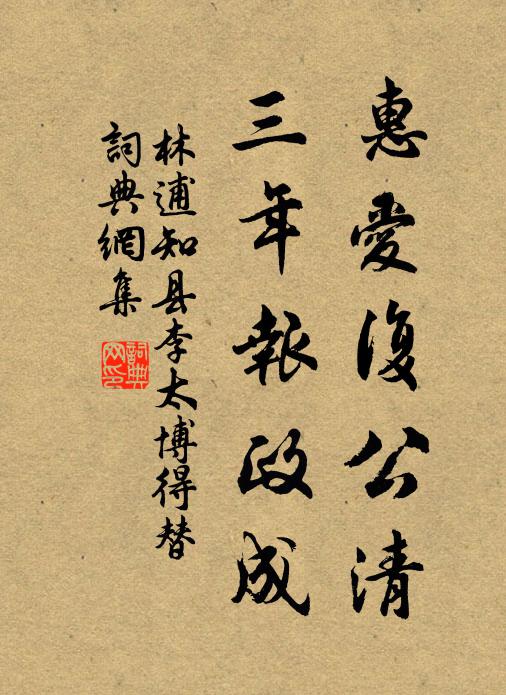 惠愛復公清
三年報政成
林逋知县李太博得替
詞典網集
詞典网印